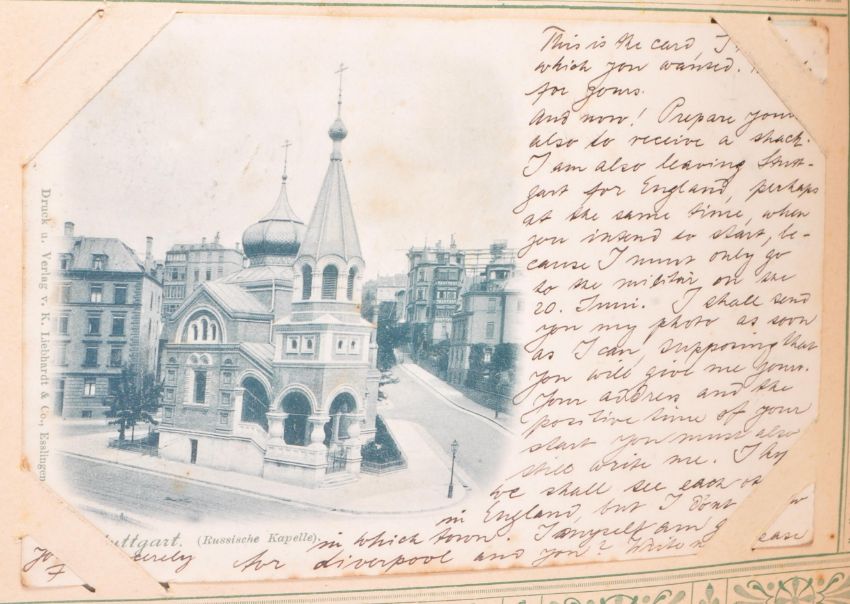 This is the card, I
which you wanted.
for yours.
And now! Prepare your
also to receive a shack.
I am also leaving Stutt-
gart for England, perhaps
at the same time, when
you intend to start, be-
cause I must only go
to the militär on the
20. Juni. I shall send
you my photo as soon
as I can, supposing that
you will give me yours.
Your address and the
positive time of your
start you must also
still write me.
we shall see each
in England, but I don't
in which town. I myself am
for Liverpool and you? Write
Druck u. Verlag v. K. Liebhardt & Co., Esslingen
Stuttgart. (Russische Kapelle).